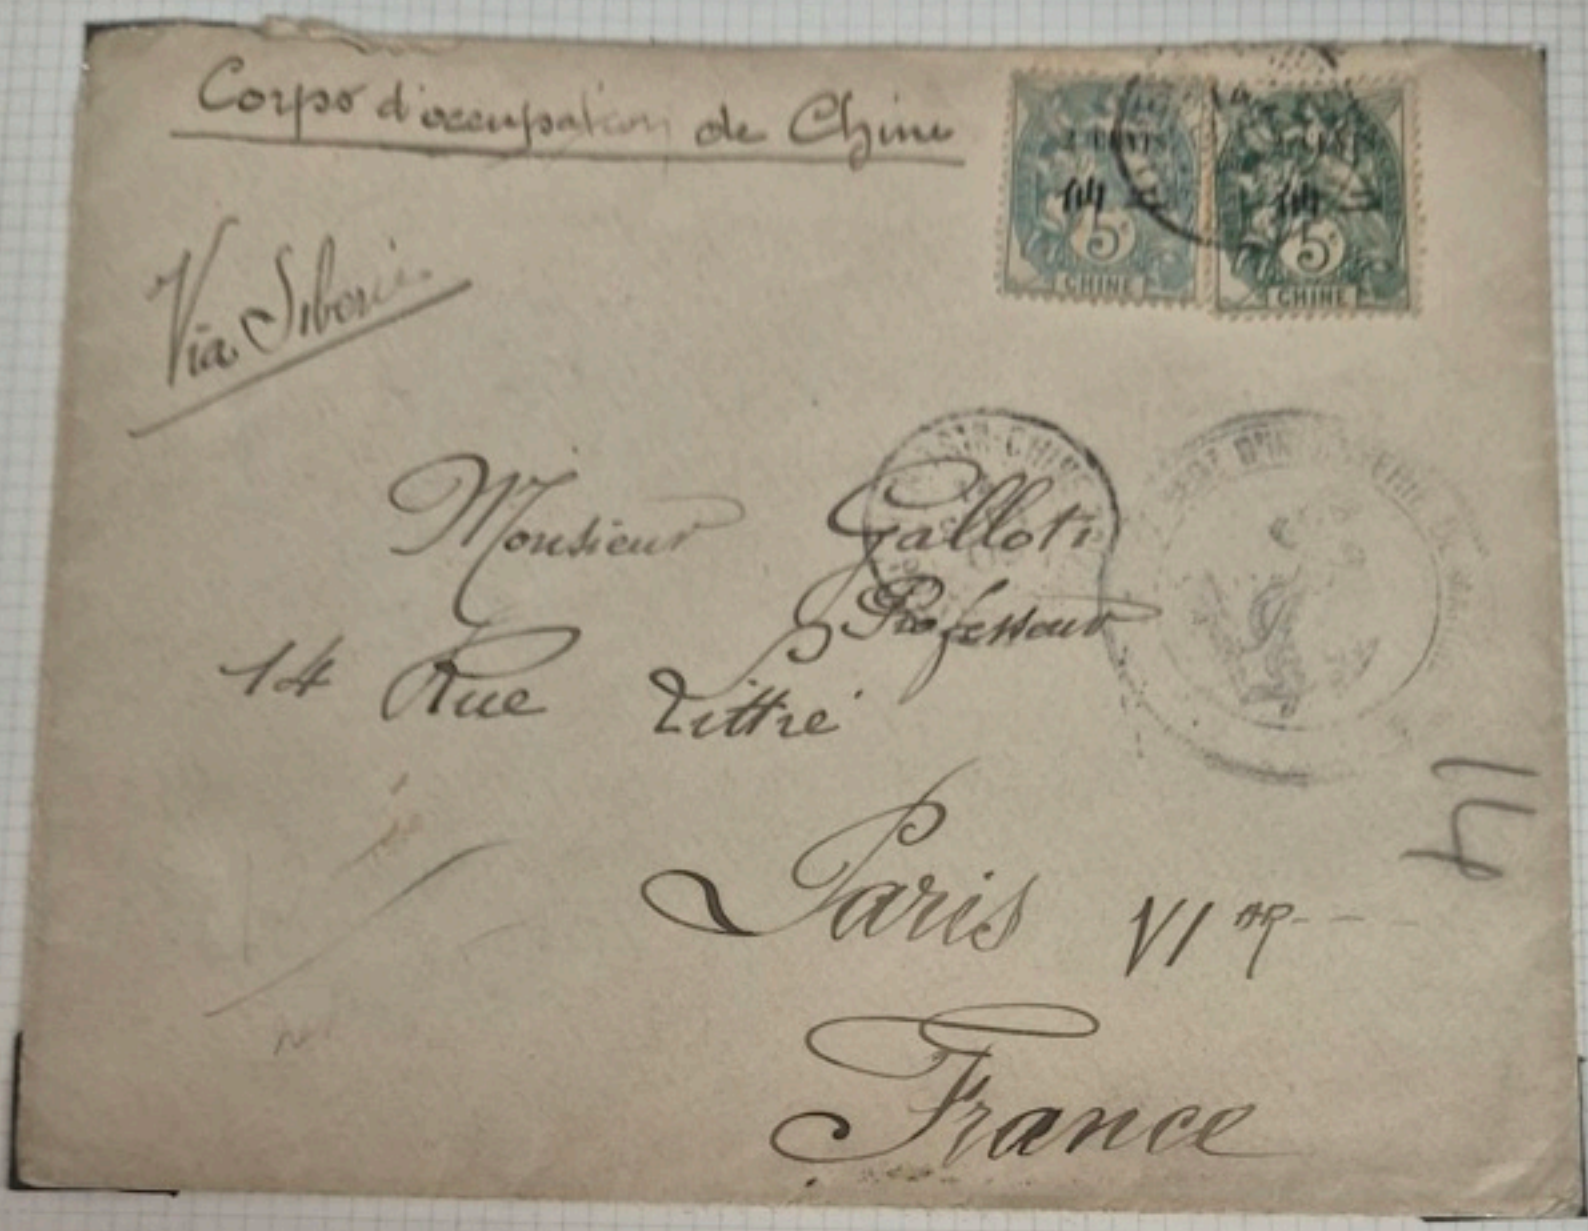 Corps d'occupation de Chine
Via Siberie
2 CENTS
分
5c
CHINE
2 CENTS
分
5c
CHINE
Monsieur Gallotti
Professeur
14 Rue Littré
14
Paris VI AR
France